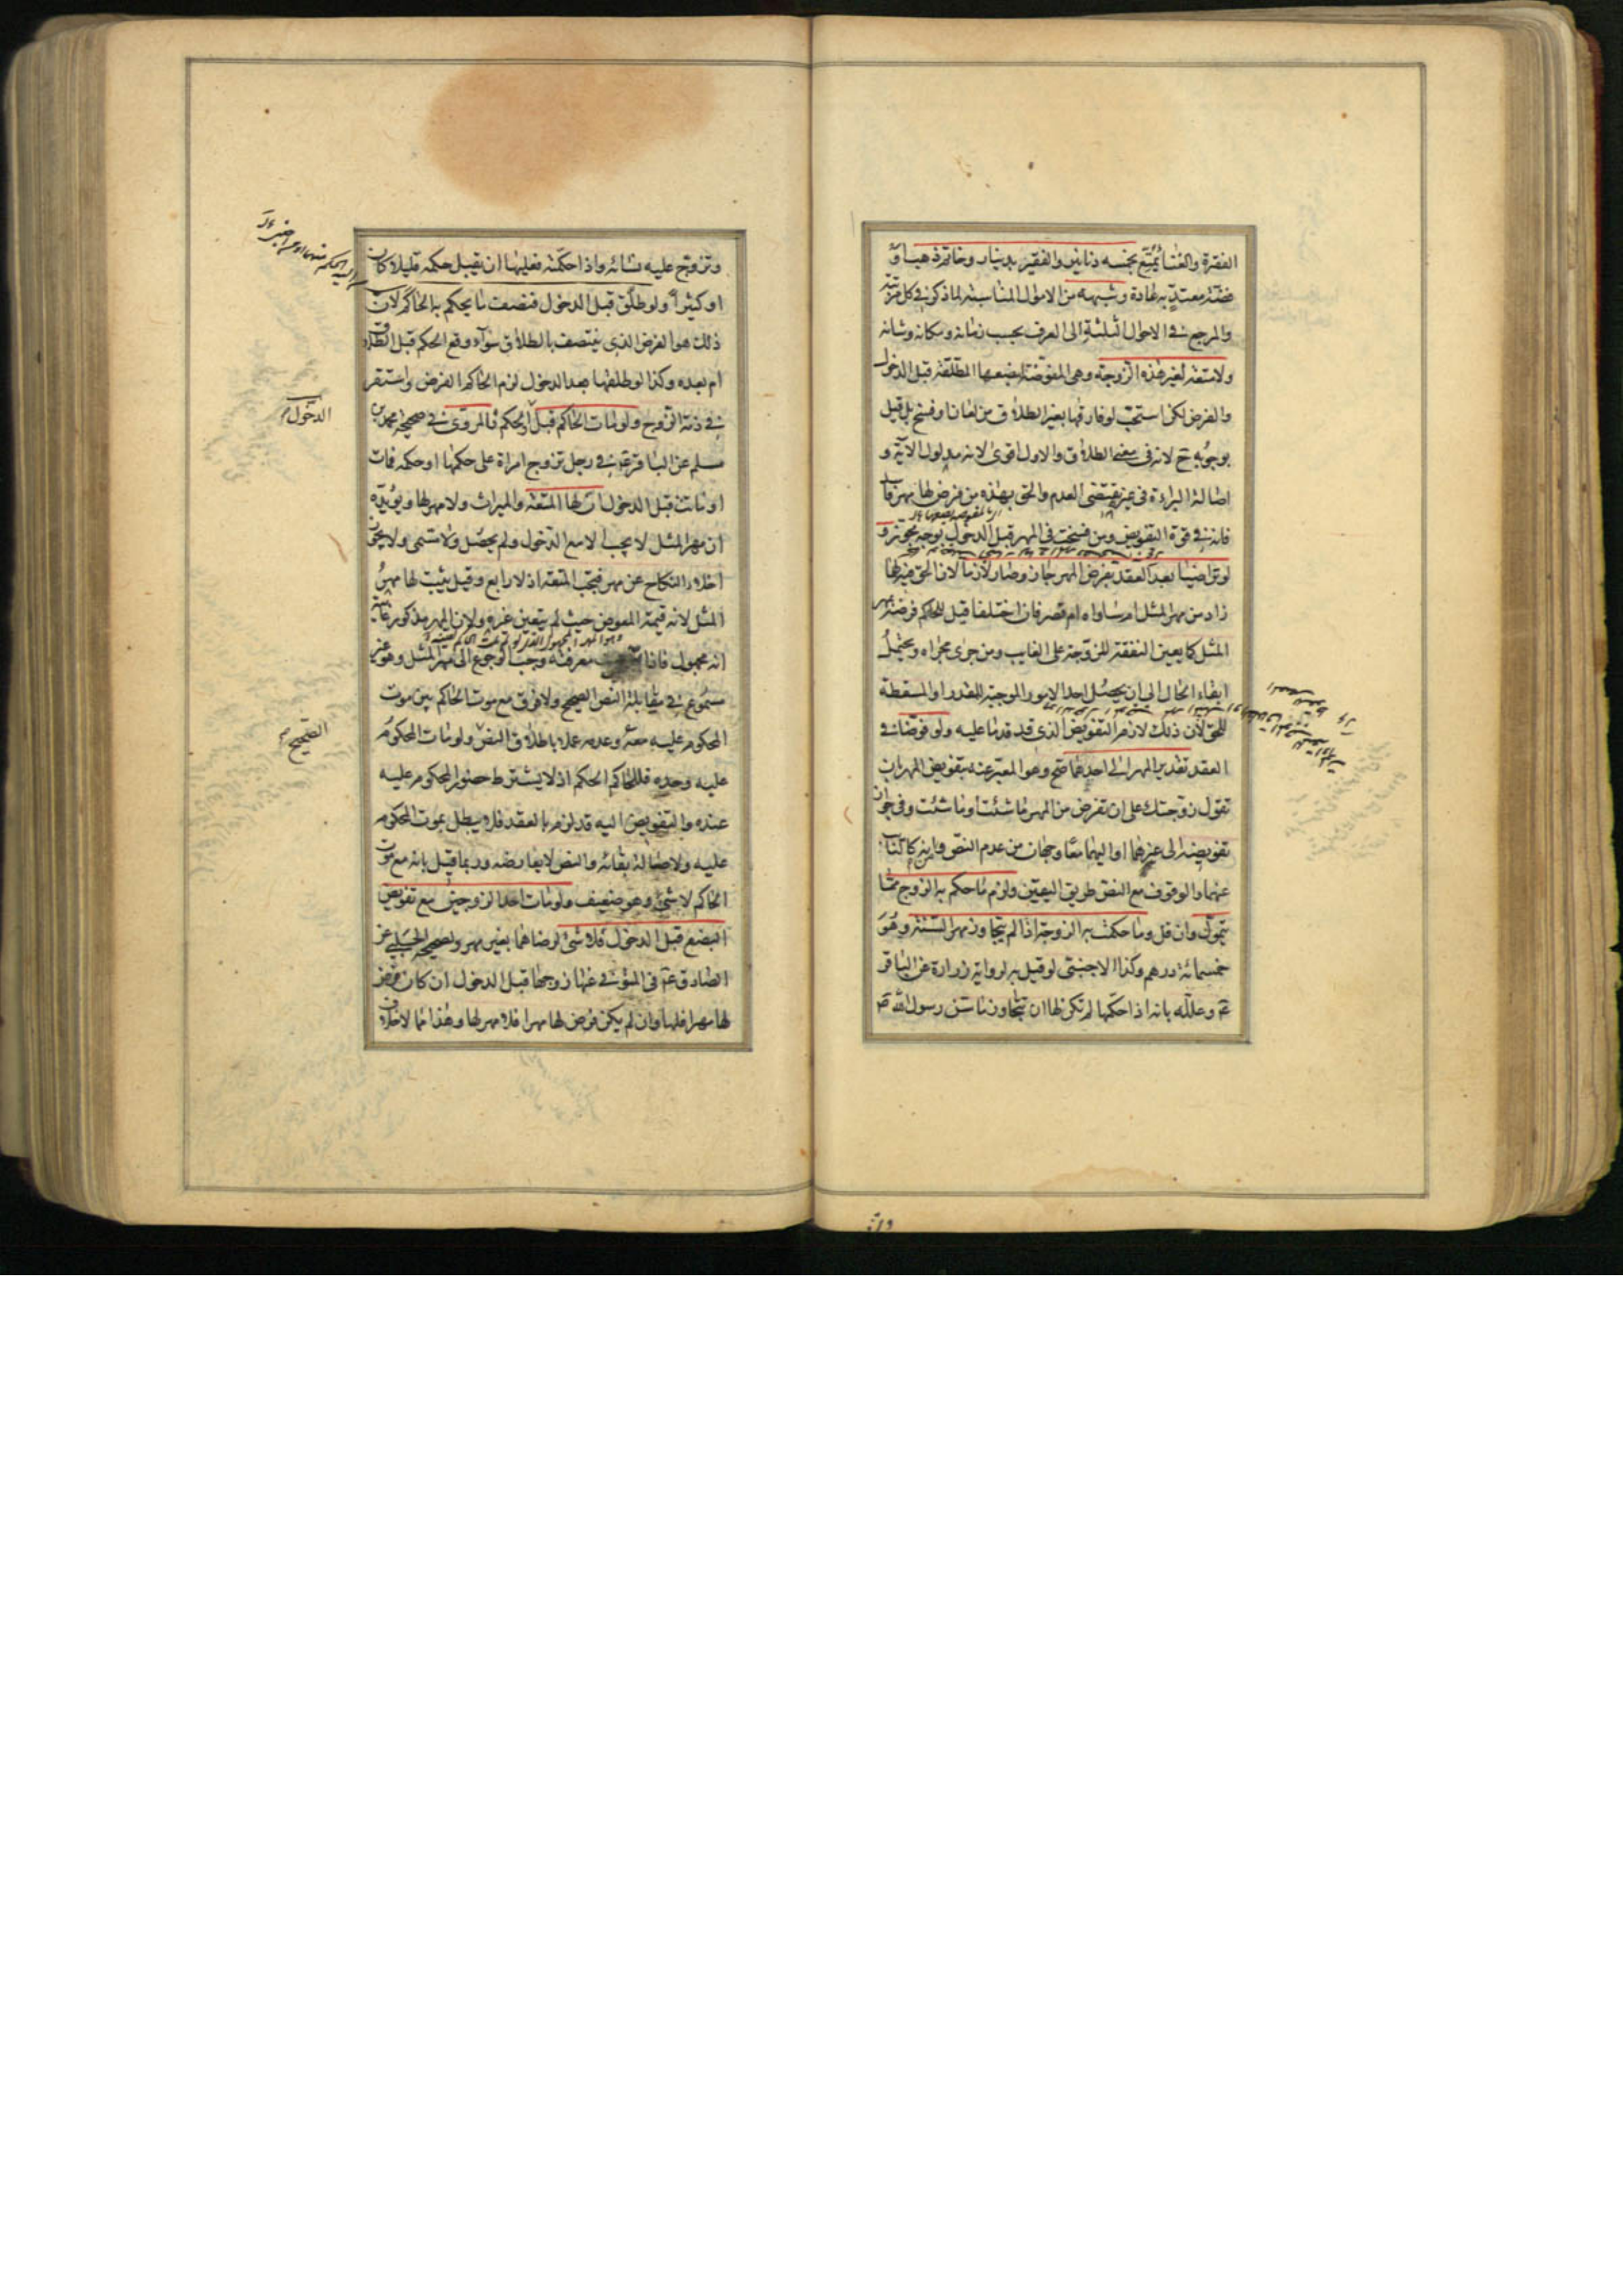 الفقرة والغنا ئمتّع بخمسه دنانير والفقير بدينار وخاتم ذهب او
فضّة معتدّ به عادة وشبهه من الاموال المناسبة لما ذكر في كل مرتبة
والمرجع في الاحوال الثلثة الى العرف بحسب زمانه ومكانه وشانه
ولا متعة لغير هذه الزوجة وهي المفوّضة لبضعها المطلّقة قبل الدخول
والفرض لكن استحبّ لو فارقها بغير الطلاق من لعان او فسخ بل قيل
بوجوبه ح لانه في معنى الطلاق والاول اقوى لانه مدلول الاية و
اصالة البراءة في غيره تقتضى العدم والحق بهذه من فرض لها مهر فاسد
فانه في قوة التفويض ومن فسخت في المهر قبل الدخول بوجه مجوّز و
لو تراضيا بعد العقد بفرض المهر جاز وصار لازما لان الحق فيه لها
زاد من مهر المثل ام ساواه ام قصر فان اختلفا قيل للحاكم فرضه بمهر
المثل كما يعين النفقة للزوجة على الغايب ومن جرى مجراه ويحتمل
ابقاء الحال الى ان يحصل احد الامور الموجبة للقدر او المسقطة
للحق لان ذلك لازم التفويض الذى قد قدما عليه ولو فوّضا في
العقد تقدير المهر الى احدهما صح وهو المعبّر عنه بتفويض المهر بان
تقول زوجتك على ان تفرض من المهر ما شئت او ما شئت وفي جواز
تفويضه الى غيرهما او اليهما معا وجهان من عدم النص ومن انه كالنائب
عنهما والوقوف مع النص طريق اليقين ولزم ما حكم به الزوج ممّا
يتموّل وان قل وما حكمت به الزوجة اذا لم يتجاوز مهر السّنّة وهو
خمسمائة درهم وكذا الاجنبى لو قيل به لرواية زرارة عن الباقر
ع وعلله بانه اذا حكّمها لم تكن لها ان تتجاوز ما سنّ رسول الله ص
وتزوّج عليه نسائه واذا حكّمته فعليها ان تقبل حكمه قليلا كان
او كثيرا ولو طلّق قبل الدخول فنصف ما يحكم به الحاكم لان
ذلك هو الفرض الذى ينتصف بالطلاق سوآء وقع الحكم قبل الطلاق
ام بعده وكذا لو طلقها بعد الدخول لزم الحاكم الفرض واستقر
في ذمة الزوج ولو مات الحاكم قبل الحكم فالمروى في صحيحة محمد بن
الدخول
مسلم عن الباقر ع في رجل تزوج امراة على حكمها او حكمه فمات
او ماتت قبل الدخول ان لها المتعة والميراث ولا مهر لها ويؤيّده
ان مهر المثل لا يجب الا مع الدخول ولم يحصل ولا مسمى ولا يجوز
اخلاء النكاح عن مهر فيجب المتعة اذ لا رابع وقيل يثبت لها مهر
المثل لانه قيمة المعوض حيث لم يتعين غيره ولان المهر مذكور غايته
انه مجهول فاذا معرفته وجب الرجوع الى مهر المثل وهو غير
مسموع في مقابلة النص الصحيح ولا فرق مع موت الحاكم بين موت
الصحيح
المحكوم عليه معه وعدمه عملا باطلاق النص ولو مات المحكوم
عليه وحده فللحاكم الحكم اذ لا يشترط حضور المحكوم عليه
عنده والتفويض اليه قد لزم بالعقد فلا يبطل بموت المحكوم
عليه ولاصالة بقائه والنص لا يعارضه وربما قيل بانه مع موت
الحاكم لا شئ وهو ضعيف ولو مات احد الزوجين مع تفويض
البضع قبل الدخول فلا شئ لرضاهما بغير مهر ولصحيح الحلبي عن
الصادق ع في المتوفى عنها زوجها قبل الدخول ان كان فرض
لها مهرا فلها وان لم يكن فرض لها مهرا فلا مهر لها وهذا مما لا خلاف